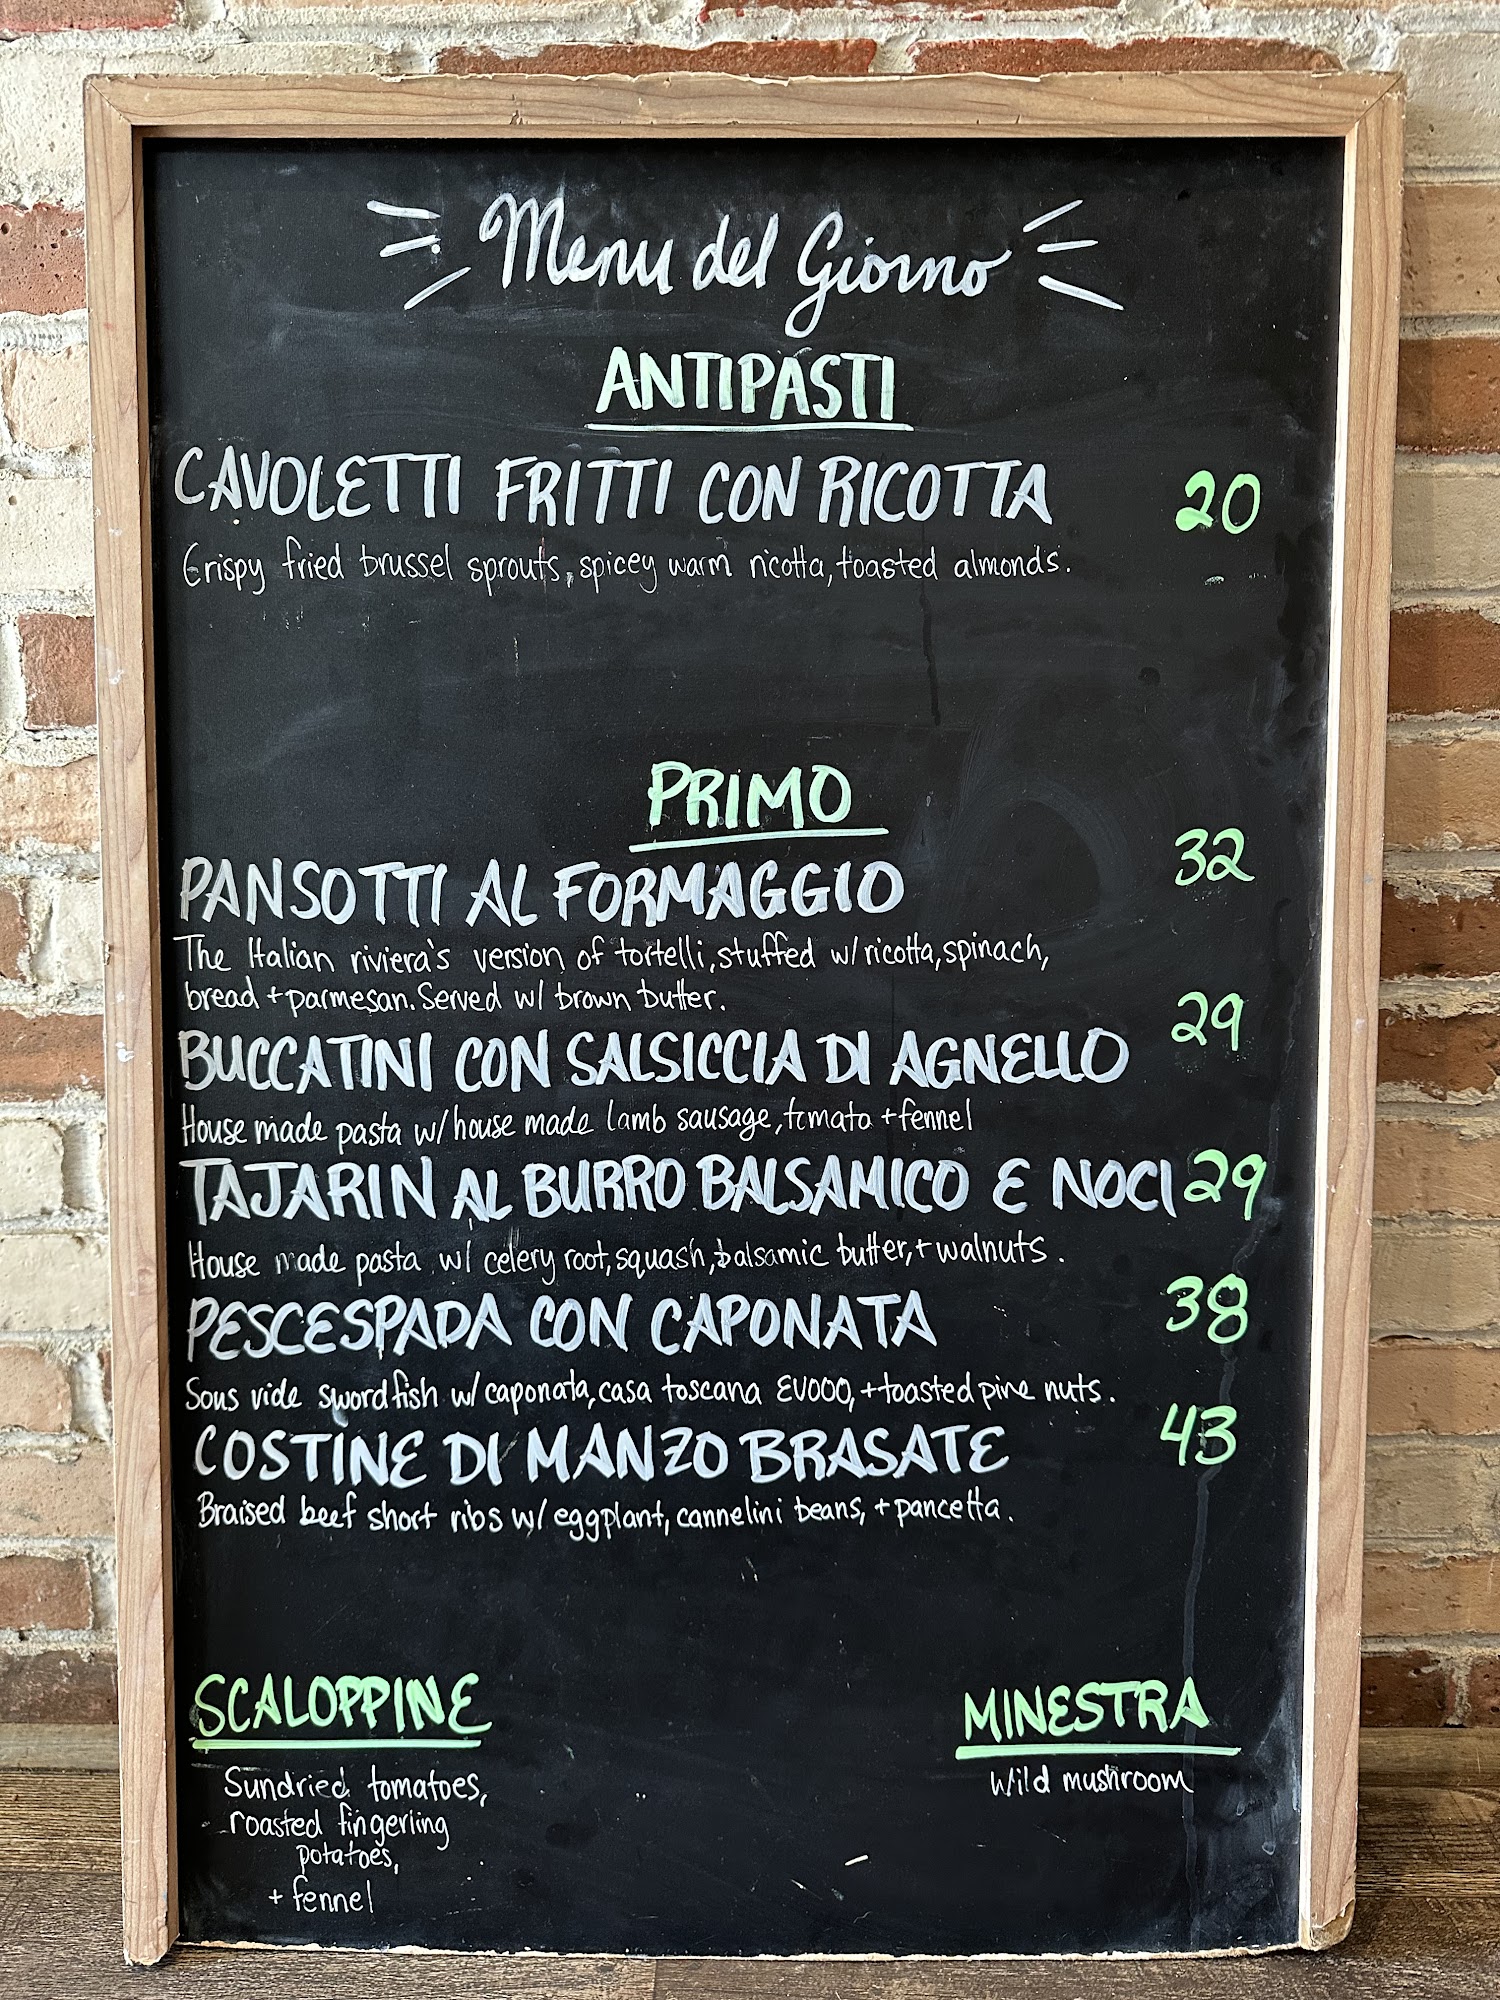 Menu del Giorno
ANTIPASTI
CAVOLETTI FRITTI CON RICOTTA 20
Crispy fried brussel sprouts, spicey warm ricotta, toasted almonds.
PRIMO
PANSOTTI AL FORMAGGIO 32
The Italian riviera's version of tortelli, stuffed w/ ricotta, spinach,
bread + parmesan. Served w/ brown butter.
BUCCATINI CON SALSICCIA DI AGNELLO 29
House made pasta w/ house made lamb sausage, tomato + fennel
TAJARIN AL BURRO BALSAMICO E NOCI 29
House made pasta w/ celery root, squash, balsamic butter, + walnuts.
PESCESPADA CON CAPONATA 38
Sous vide swordfish w/ caponata, casa toscana EVOOO, + toasted pine nuts.
COSTINE DI MANZO BRASATE 43
Braised beef short ribs w/ eggplant, cannelini beans, + pancetta.
SCALOPPINE
Sundried tomatoes,
roasted fingerling
potatoes,
+ fennel
MINESTRA
Wild mushroom